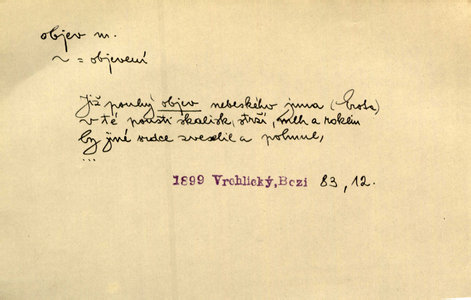 objev m.
~ = objevení
Již pouhý objev nebeského juna (Erota)
v té poušti skalisk, strží, mlh a roklin
by jiné srdce zveselil a pohnul,
...
1899 Vrchlický, Bozi 83, 12.